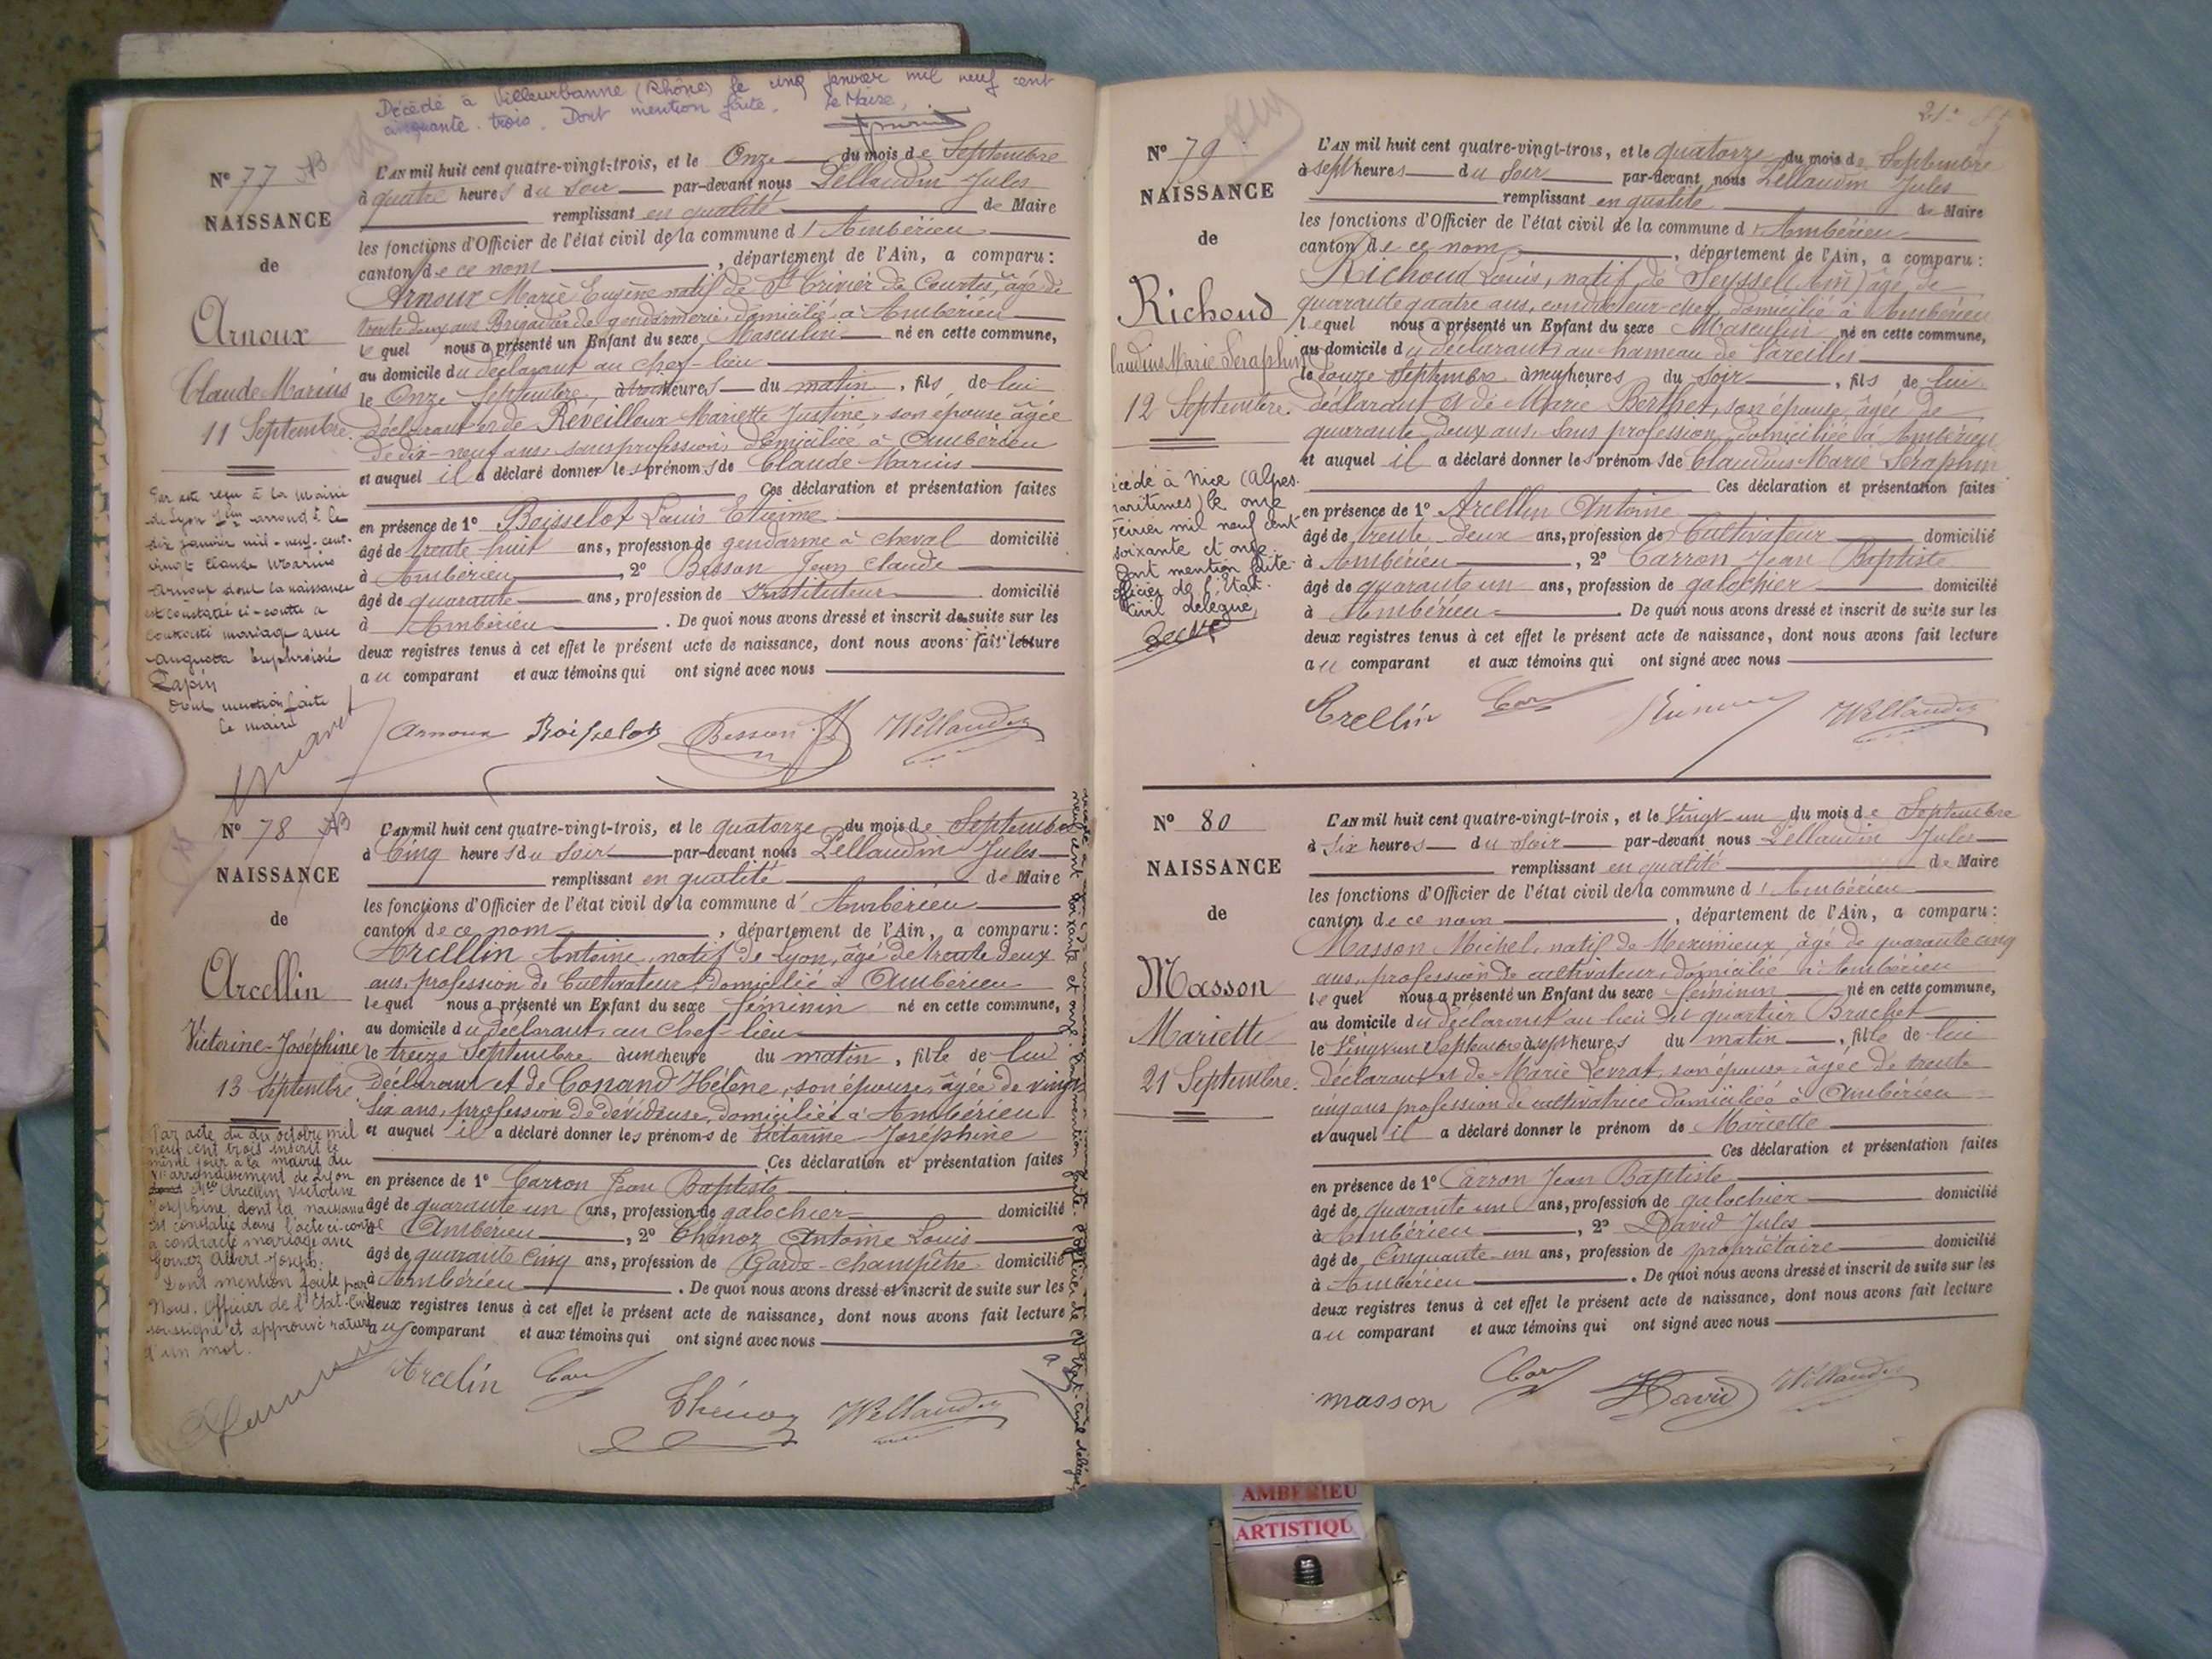 Décédé à Villeurbanne (Rhône) le cinq janvier mil neuf cent
cinquante-trois. Dont mention faite. Le Maire,
N° 77
NAISSANCE
de
Arnoux
Claude Marius
11 Septembre.
L'AN mil huit cent quatre-vingt-trois, et le Onze du mois de Septembre
à quatre heures du Soir par-devant nous Pellaudin Jules
remplissant en qualité de Maire
les fonctions d'Officier de l'état civil de la commune d'Ambérieu
canton de ce nom, département de l'Ain, a comparu:
Arnoux Marie Eugène natif de St Trivier de Courtes, âgé de
trente deux ans Brigadier de gendarmerie, domicilié à Ambérieu
lequel nous a présenté un Enfant du sexe Masculin né en cette commune,
au domicile du déclarant au chef-lieu
le Onze Septembre, à trois heures du matin, fils de lui
déclarant et de Reveilloux Mariette Justine, son épouse âgée
de dix-neuf ans sans profession, domiciliée à Ambérieu
et auquel il a déclaré donner les prénoms de Claude-Marius
Ces déclaration et présentation faites
en présence de 1° Boisselot Louis Etienne
âgé de trente huit ans, profession de gendarme à cheval domicilié
à Ambérieu, 2° Besson Jean Claude
âgé de quarante ans, profession de Instituteur domicilié
à Ambérieu. De quoi nous avons dressé et inscrit de suite sur les
deux registres tenus à cet effet le présent acte de naissance, dont nous avons fait lecture
au comparant et aux témoins qui ont signé avec nous
Par acte reçu à la Mairie
de Lyon arrondt le
dix janvier mil-neuf-cent-
vingt Claude Marius
Arnoux dont la naissance
est constatée ci-contre a
contracté mariage avec
Augusta Euphroisie
Papin
Dont mention faite
le maire
Arnoux Boisselot Besson
N° 78
NAISSANCE
de
Arcellin
Victorine-Joséphine
13 Septembre
L'AN mil huit cent quatre-vingt-trois, et le quatorze du mois de Septembre
à Cinq heures du Soir par-devant nous Pellaudin Jules
remplissant en qualité de Maire
les fonctions d'Officier de l'état civil de la commune d'Ambérieu
canton de ce nom, département de l'Ain, a comparu:
Arcellin Antoine, natif de Lyon, âgé de trente deux
ans, profession de Cultivateur domicilié à Ambérieu
lequel nous a présenté un Enfant du sexe féminin né en cette commune,
au domicile du déclarant, au chef-lieu
le treize Septembre à une heure du matin, fille de lui
déclarant et de Conand Hélène, son épouse, âgée de vingt
six ans, profession de dévideuse, domiciliée à Ambérieu
et auquel il a déclaré donner les prénoms de Victorine-Joséphine
Ces déclaration et présentation faites
en présence de 1° Carron Jean Baptiste
âgé de quarante un ans, profession de galochier domicilié
à Ambérieu, 2° Thénoz Antoine Louis
âgé de quarante cinq ans, profession de Garde-champêtre domicilié
à Ambérieu. De quoi nous avons dressé et inscrit de suite sur les
deux registres tenus à cet effet le présent acte de naissance, dont nous avons fait lecture
au comparant et aux témoins qui ont signé avec nous
Par acte du dix octobre mil
neuf cent trois inscrit le
même jour à la mairie du
arrondissement de Lyon
Arcellin Victorine
Joséphine, dont la naissance
est constatée dans l'acte ci-contre
a contracté mariage avec
Albert-Joseph.
Dont mention faite par
Nous, Officier de l'Etat-Civil
soussigné et approuvé rature
d'un mot.
Arcelin Thénoz
N° 79
NAISSANCE
de
Richoud
Claudius Marie Seraphin
12 Septembre.
L'AN mil huit cent quatre-vingt-trois, et le quatorze du mois de Septembre
à sept heures du Soir par-devant nous Pellaudin Jules
remplissant en qualité de Maire
les fonctions d'Officier de l'état civil de la commune d'Ambérieu
canton de ce nom, département de l'Ain, a comparu:
Richoud Louis, natif de Seyssel (Ain) âgé de
quarante quatre ans, conducteur-chef, domicilié à Ambérieu
lequel nous a présenté un Enfant du sexe Masculin né en cette commune,
au domicile du déclarant, au hameau de Vareilles
le douze Septembre à neuf heures du Soir, fils de lui
déclarant et de Marie Berthet, son épouse, âgée de
quarante deux ans, sans profession, domiciliée à Ambérieu
et auquel il a déclaré donner les prénoms de Claudius Marie Séraphin
Ces déclaration et présentation faites
en présence de 1° Arcellin Antoine
âgé de trente deux ans, profession de Cultivateur domicilié
à Ambérieu, 2° Carron Jean Baptiste
âgé de quarante un ans, profession de galochier domicilié
à Ambérieu. De quoi nous avons dressé et inscrit de suite sur les
deux registres tenus à cet effet le présent acte de naissance, dont nous avons fait lecture
au comparant et aux témoins qui ont signé avec nous
écédé à Nice (Alpes-
maritimes) le onze
février mil neuf cent
soixante et onze.
Dont mention faite.
officier de l'Etat-
Civil délégué,
Arcellin
N° 80
NAISSANCE
de
Masson
Mariette
21 Septembre.
L'AN mil huit cent quatre-vingt-trois, et le Vingt-un du mois de Septembre
à Six heures du Soir par-devant nous Pellaudin Jules
remplissant en qualité de Maire
les fonctions d'Officier de l'état civil de la commune d'Ambérieu
canton de ce nom, département de l'Ain, a comparu:
Masson Michel, natif de Meximieux, âgé de quarante cinq
ans, profession de cultivateur, domicilié à Ambérieu
lequel nous a présenté un Enfant du sexe féminin né en cette commune,
au domicile du déclarant au lieu dit quartier Brachet
le Vingt un Septembre à sept heures du matin, fille de lui
déclarant et de Marie Levrat, son épouse, âgée de trente
cinq ans profession de cultivatrice domiciliée à Ambérieu
et auquel il a déclaré donner le prénom de Mariette
Ces déclaration et présentation faites
en présence de 1° Carron Jean Baptiste
âgé de quarante un ans, profession de galochier domicilié
à Ambérieu, 2° David Jules
âgé de Cinquante-un ans, profession de propriétaire domicilié
à Ambérieu. De quoi nous avons dressé et inscrit de suite sur les
deux registres tenus à cet effet le présent acte de naissance, dont nous avons fait lecture
au comparant et aux témoins qui ont signé avec nous
masson David
AMBERIEU
ARTISTIQU